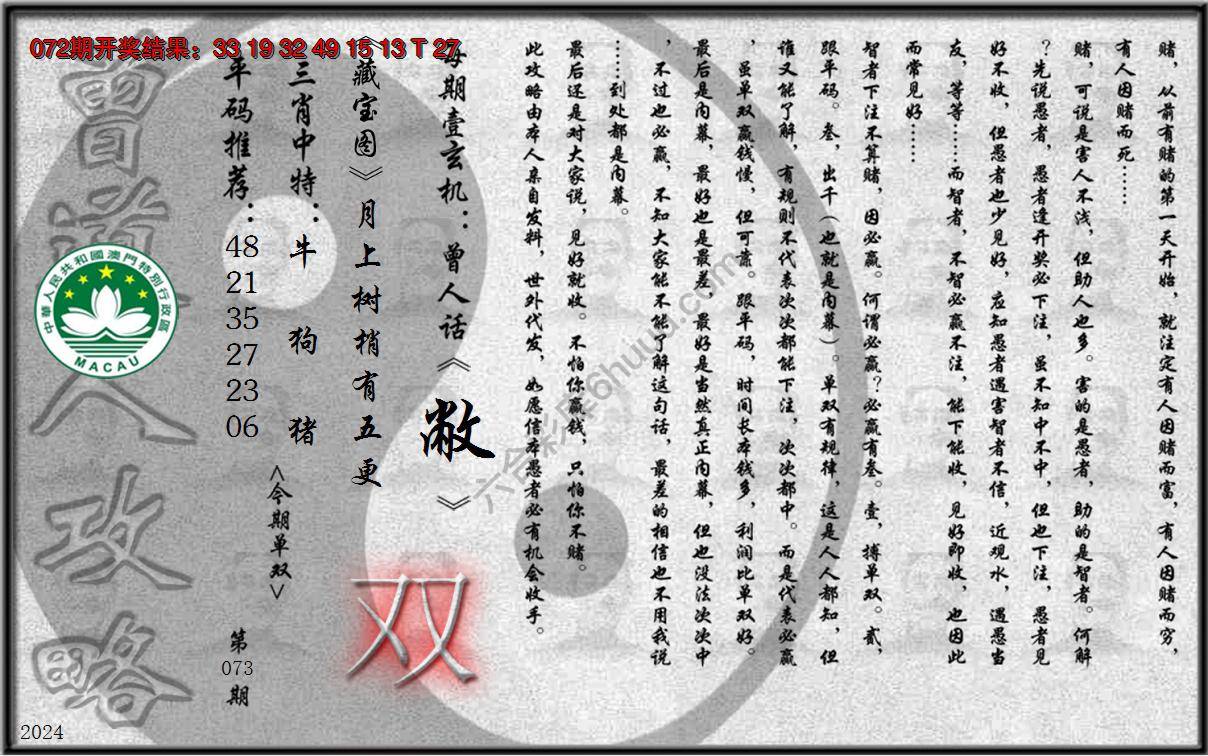 072期开奖结果：33 19 32 49 15 13 T 27
赌，从前有赌的第一天开始，就注定有人因赌而富，有人因赌而穷，
有人因赌而死……
赌，可说是害人不浅，但助人也多。害的是愚者，助的是智者。何解
？先说愚者，愚者逢开奖必下注，虽不知中不中，但也下注，愚者见
好不收，但愚者也少见好，应知愚者遇害智者不信，近观水，遇愚当
友，等等……而智者，不智必赢不注，能下能收，见好即收，也因此
而常见好……
智者下注不算赌，因必赢。何谓必赢？必赢有叁。壹，搏单双。贰，
跟平码。叁，出千（也就是内幕）。单双有规律，这是人人都知，但
谁又能了解，有规则不代表次次都能下注，次次都中。而是代表必赢
，虽单双赢钱慢，但可靠。跟平码，时间长本钱多，利润比单双好。
最后是内幕，最好也是最差，最好是当然真正内幕，但也没法次次中
，不过也必赢，不知大家能不能了解这句话，最差的相信也不用我说
……到处都是内幕。
最后还是对大家说，见好就收。不怕你赢钱，只怕你不赌。
此攻略由本人亲自发料，世外代发，如愿信本愚者必有机会收手。
每期壹玄机：曾人话《敝》
《藏宝图》月上树梢有五更
双
三肖中特：牛 狗 猪
平码推荐：48 21 35 27 23 06
<今期单双>
第073期
曾道人攻略
中華人民共和國澳門特別行政區
MACAU
六合彩库6huuu.com
2024